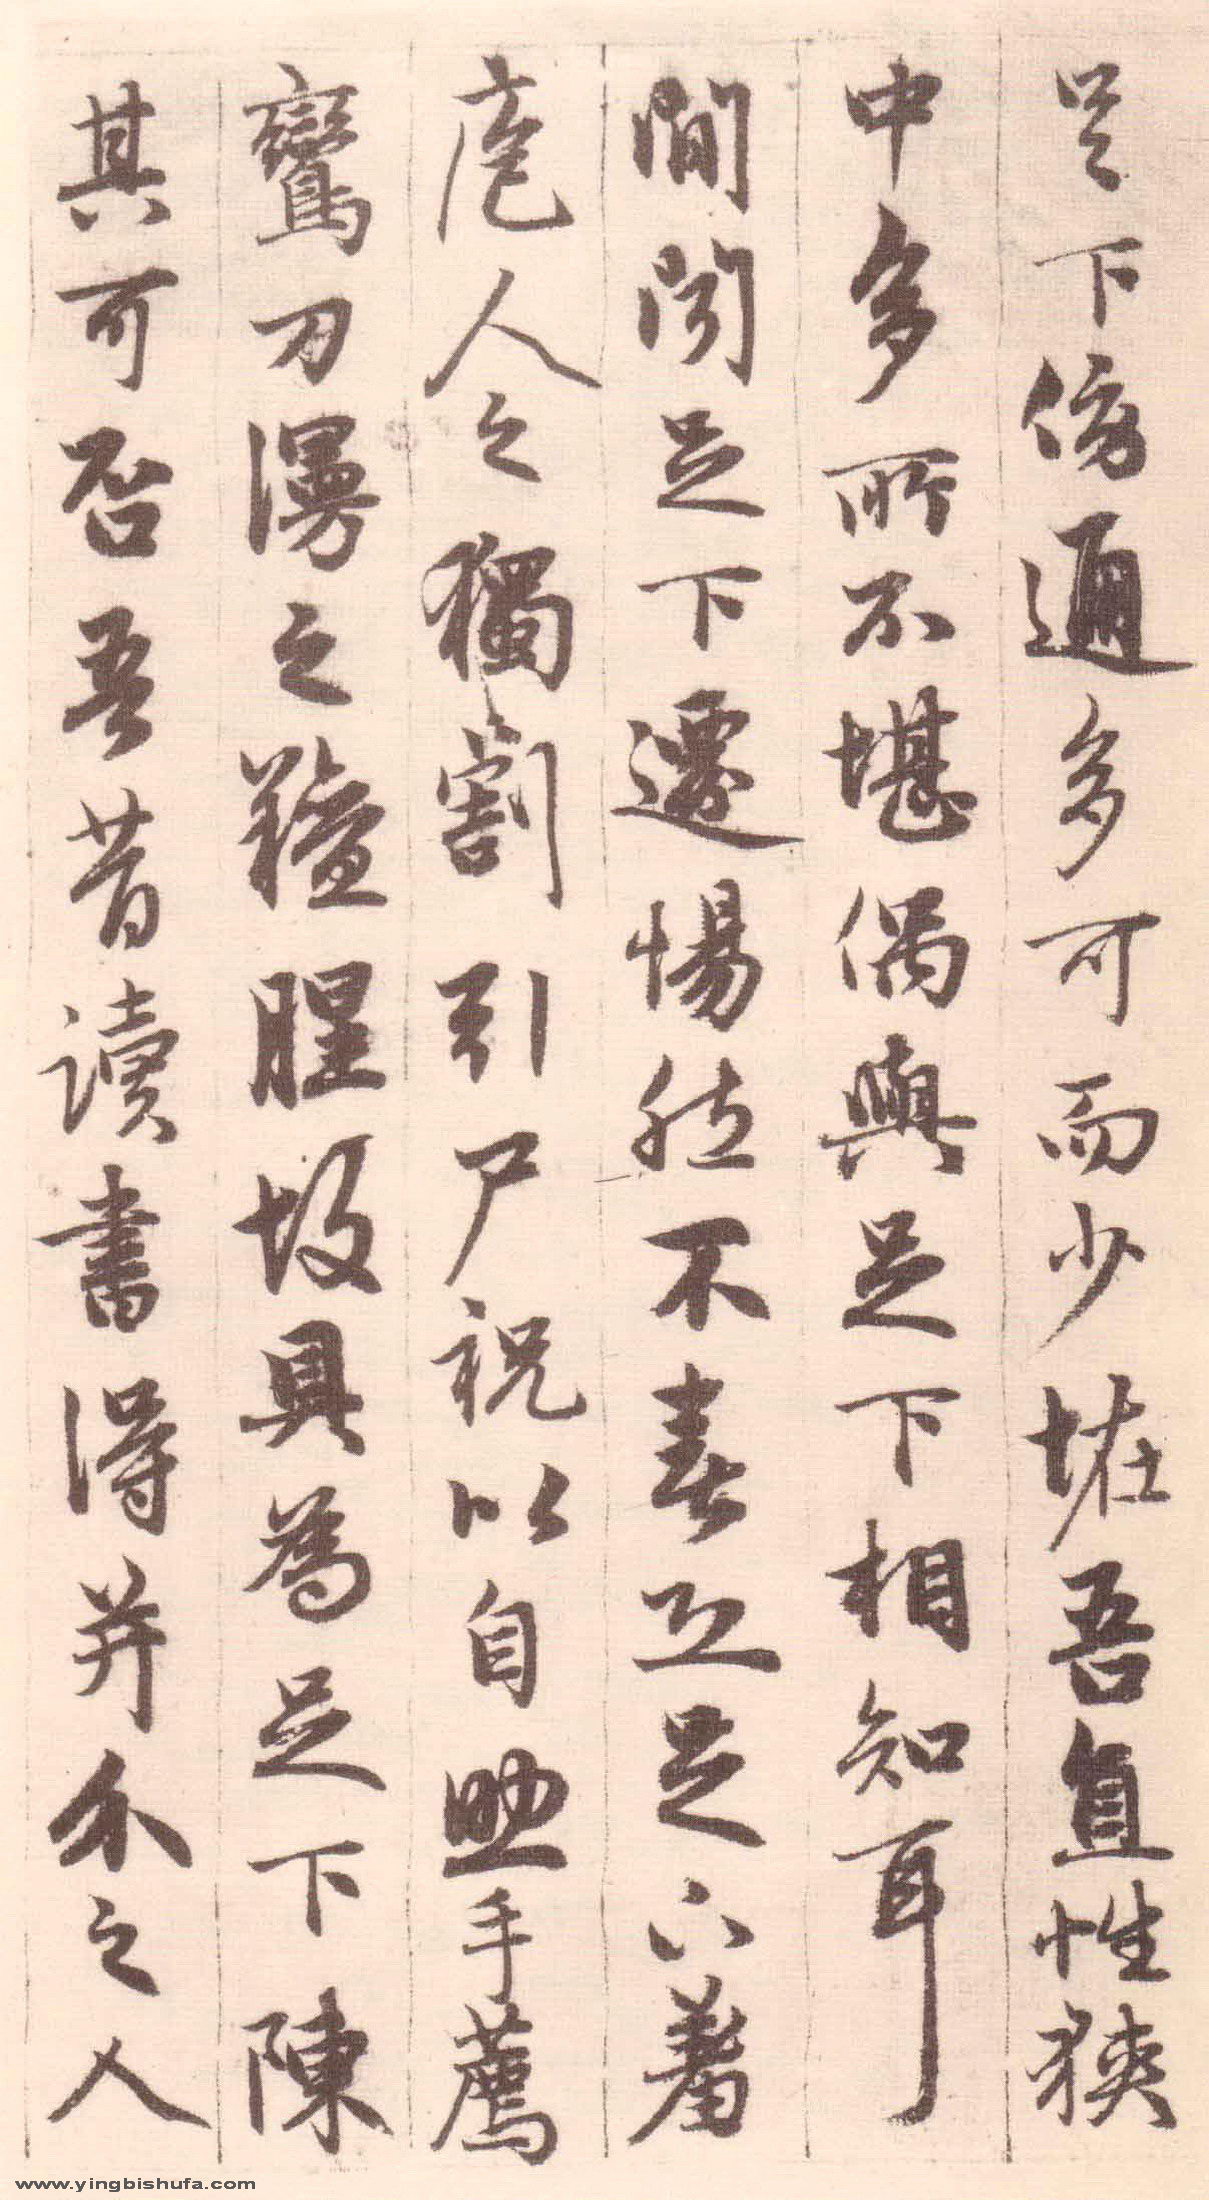 足下傍通多可而少怪吾直性狹
中多所不堪偶與足下相知耳
間聞足下遷惕然不喜恐足下羞
庖人之獨割引尸祝以自助手薦
鸞刀漫之羶腥故具為足下陳
其可否吾昔讀書得并介之人
www.yingbishufa.com